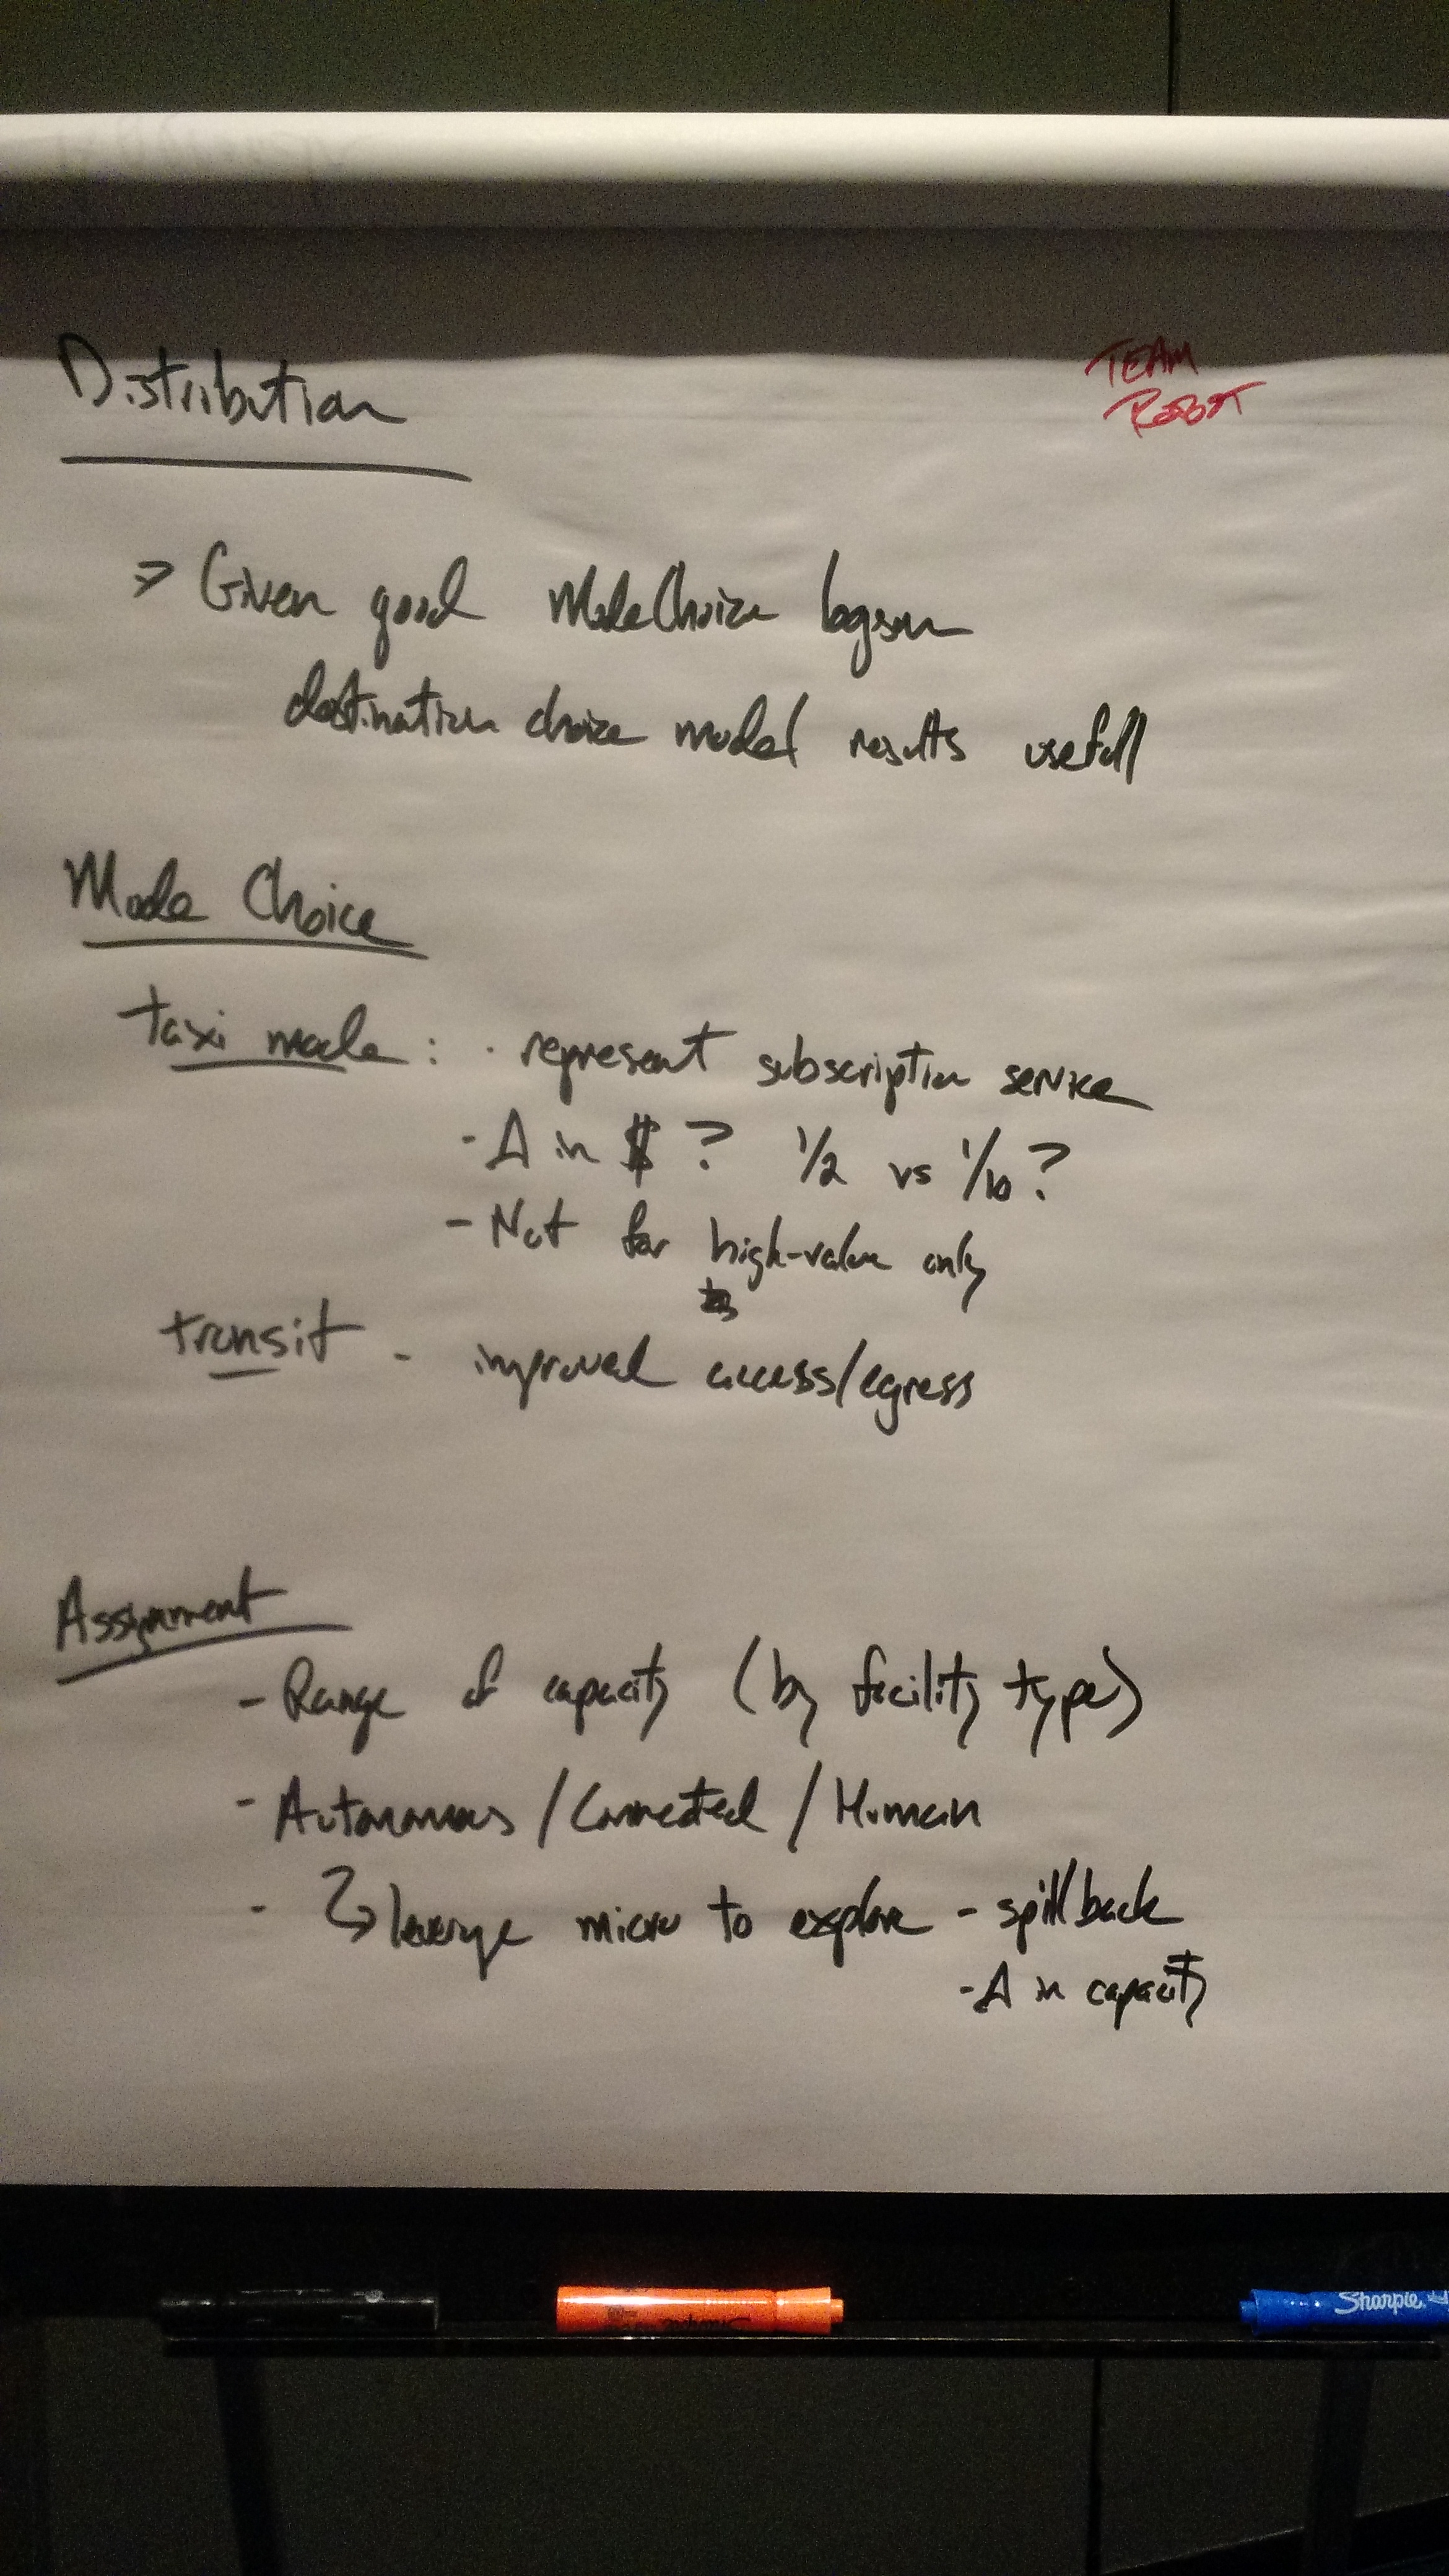 TEAM
ROBOT
Distribution
=> Given good Mode Choice logsum
destination choice model results usefull
Mode Choice
taxi mode : · represent subscription service
- Δ in $ ? 1/2 vs 1/10 ?
- Not for high-value only
transit - improved access/egress
Assignment
- Range of capacity (by facility type)
- Autonomous / Connected / Human
- ↳ leverage micro to explore - spillback
- Δ in capacity
Sharpie